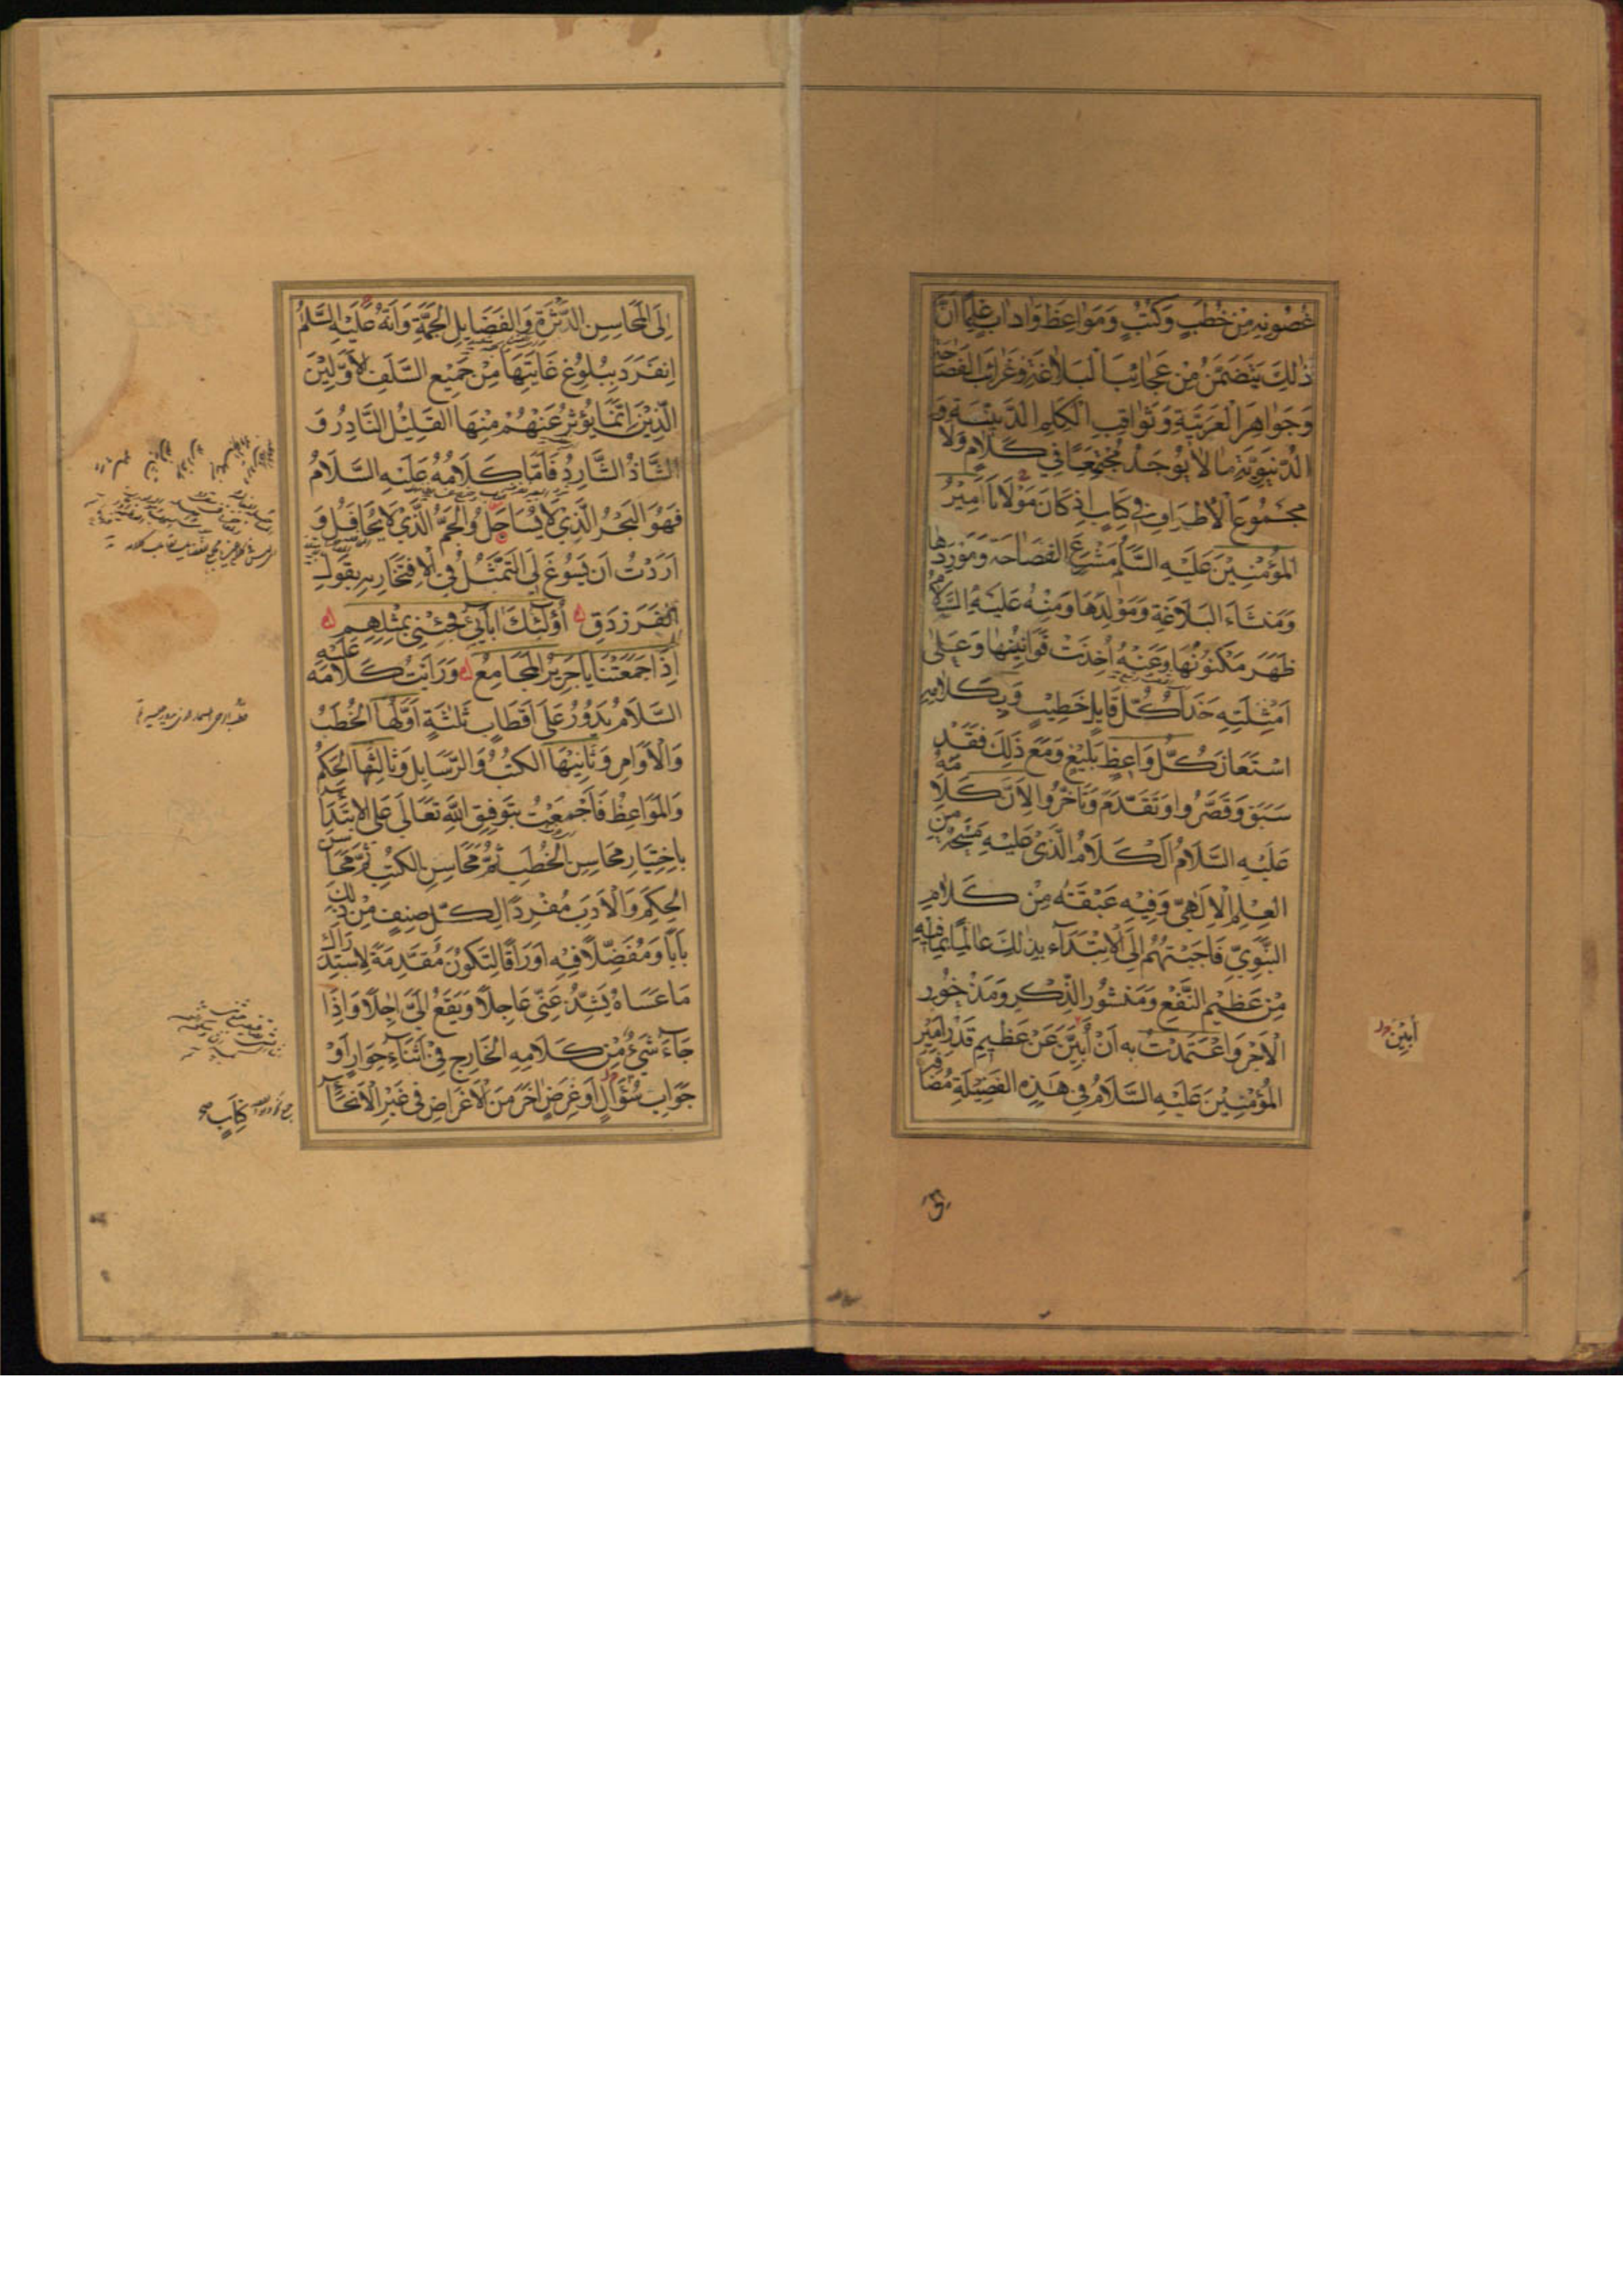 غُصُونِهِ مِنْ خُطَبٍ وَكُتُبٍ وَمَوَاعِظَ وَادابٍ عِلماً اَنَّ
ذٰلِكَ يَتَضَمَّنُ مِنْ عَجائِبِ الْبَلَاغَةِ وَغَرائِبِ الفَصَاحَةِ
وَجَواهِرِ الْعَرَبِيَّةِ وَثَواقِبِ الْكَلِمِ الدّينِيَّةِ وَ
الدُّنْيَوِيَّةِ مَا لا يُوجَدُ مُجْتَمِعًا فِي كَلَامٍ وَلَا
مَجْمُوعَ الْاَطْرَافِ فِي كِتَابٍ اِذ كَانَ مَوْلَانَا اَمِيْرُ
المُؤْمِنِيْنَ عَلَيْهِ السَّلَمُ مَشْرَعَ الفَصَاحَةِ وَمَوْرِدَها
وَمَنْشَاءَ البَلَاغَةِ وَمَوْلِدَهَا وَمِنْهُ عَلَيْهِ السَّلَامُ
ظَهَرَ مَكْنُونُهَا وَعَنْهُ اُخِذَتْ قَوَانِينُهَا وَعَلَى
اَمْثِلَتِهِ حَذَا كُلُّ قَايِلٍ خَطِيْبٍ وَبِكَلامِهِ
اسْتَعَانَ كُلُّ وَاعِظٍ بَلِيْغٍ وَمَعَ ذَلِكَ فَقَدْ
سَبَقَ وَقَصَّرُوا وَتَقَدَّمَ وَتَاَخَّرُوا لِاَنَّ كَلَامَهُ
عَلَيْهِ السَّلَامُ الْكَلَامُ الَّذِي عَلَيْهِ مَسْحَةٌ مِنَ
العِلْمِ الْاِلٰهِيِّ وَفِيْهِ عَبْقَةٌ مِنْ كَلامِ
النَّبَوِيِّ فَاَجَبْتُهُمْ اِلَى الْاِبْتِدَاءِ بِذٰلِكَ عَالِمًا بِمَا فِيْهِ
مِنْ عَظِيْمِ النَّفْعِ وَمَنْشُورِ الذِّكْرِ وَمَذْخُورِ
الْاَجْرِ وَاعْتَمَدْتُ بِهِ اَنْ اُبَيِّنَ عَنْ عَظِيمِ قَدْرِ اَمِيْرِ
المُؤْمِنِيْنَ عَلَيْهِ السَّلَامُ فِي هٰذِهِ الفَضِيْلَةِ مُضَافَةً
اُبِيْنَ
اِلَى الْمَحَاسِنِ الدَّثْرَةِ وَالفَضَايِلِ الجَمَّةِ وَاَنَّهُ عَلَيْهِ السَّلَمُ
اِنْفَرَدَ بِبُلُوغِ غَايَتِهَا مِنْ جَمِيْعِ السَّلَفِ الْاَوَّلِيْنَ
الَّذِيْنَ اِنَّمَا يُؤْثَرُ عَنْهُمْ مِنْهَا القَلِيْلُ النَّادِرُ وَ
الشَّاذُ الشَّارِدُ فَاَمَّا كَلَامُهُ عَلَيْهِ السَّلَامُ
فَهُوَ البَحْرُ الَّذِيْ لَا يُسَاجَلُ وَالْجَمُّ الَّذِيْ لَا يُحَافَلُ وَ
اَرَدْتُ اَنْ يَسُوغَ لِيَ التَّمَثُّلُ فِي الْاِفْتِخَارِ بِهِ بِقَوْلِ
الْفَرَزْدَقِ اُولٰئِكَ اٰبَائِي فَجِئْنِي بِمِثْلِهِمْ
اِذَا جَمَعَتْنَا يَا جَرِيرُ الْمَجَامِعُ وَرَاَيْتُ كَلَامَهُ عَلَيْهِ
السَّلَامُ يَدُوْرُ عَلَى اَقْطَابٍ ثَلٰثَةٍ اَوَّلُهَا الْخُطَبُ
وَالْاَوَامِرُ وَثَانِيْهَا الْكُتُبُ وَالرَّسَايِلُ وَثَالِثُهَا الْحِكَمُ
وَالْمَوَاعِظُ فَاَجْمَعْتُ بِتَوْفِيْقِ اللهِ تَعَالَى عَلَى الاِبْتِدَاءِ
بِاخْتِيَارِ مَحَاسِنِ الخُطَبِ ثُمَّ مَحَاسِنِ الْكُتُبِ ثُمَّ مَحَاسِنِ
الْحِكَمِ وَالْاَدَبِ مُفْرِدًا لِكُلِّ صِنْفٍ مِنْ ذٰلِكَ
بَابًا وَمُفَضِّلًا فِيْهِ اَوْرَاقًا لِتَكُوْنَ مُقَدِّمَةً لِاسْتِدْرَاكِ
مَا عَسَاهُ يَشِذُّ عَنِّي عَاجِلًا وَيَقَعُ اِلَيَّ اٰجِلًا وَاِذَا
جَاءَ شَيْءٌ مِنْ كَلَامِهِ الْخَارِجِ فِيْ اَثْنَاءِ حِوَارٍ اَوْ
جَوَابِ سُؤَالٍ اَوْ غَرَضٍ اٰخَرَ مِنَ الْاَغْرَاضِ فِي غَيْرِ الْاَنْحَاءِ
كِتَابٍ صح